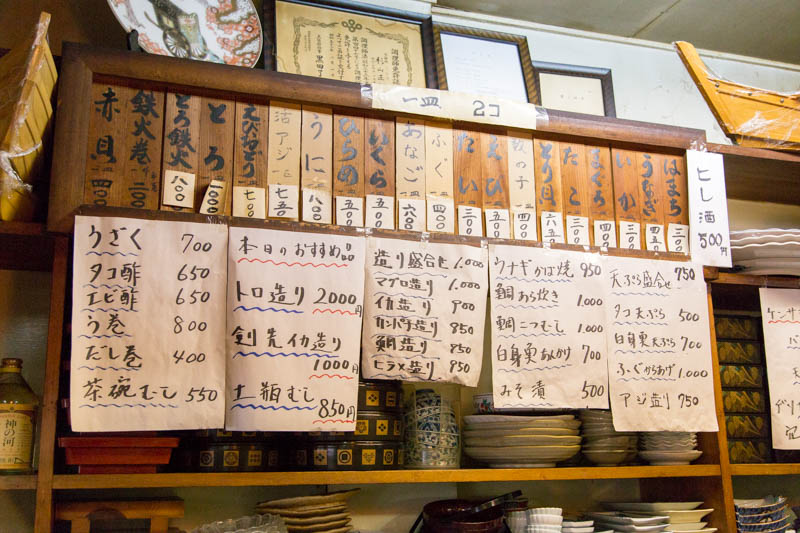 調理師免許証
一皿 2コ
赤貝 四〇〇
鉄火巻
とろ鉄火 八〇〇
とろ 一〇〇〇
えびおどり 七〇〇
活アジ 七五〇
うに 八〇〇
ひらめ 五〇〇
いくら 五〇〇
あなご 六〇〇
ふぐ 四〇〇
たい 三〇〇
えび 五〇〇
数の子 四〇〇
とり貝 六五〇
たこ 三〇〇
まぐろ 四〇〇
いか 三〇〇
うなぎ 四五〇
はまち 三〇〇
ヒレ酒 500円
うざく 700
タコ酢 650
エビ酢 650
う巻 800
だし巻 400
茶碗むし 550
本日のおすすめ品
トロ造り 2000円
剣先イカ造り
1000円
土瓶むし 850円
造り盛合せ 1.000
マグロ造り 1.000
イカ造り 900
カンパチ造り 850
鯛造り 950
ヒラメ造り 950
ウナギかば焼 950
鯛あら炊き 1.000
鯛こつむし 1.000
白身魚あんかけ 700
みそ漬 500
天ぷら盛合せ 750
タコ天ぷら 500
白身魚天ぷら 700
ふぐからあげ 1.000
アジ造り 750
ケンサ
神の河